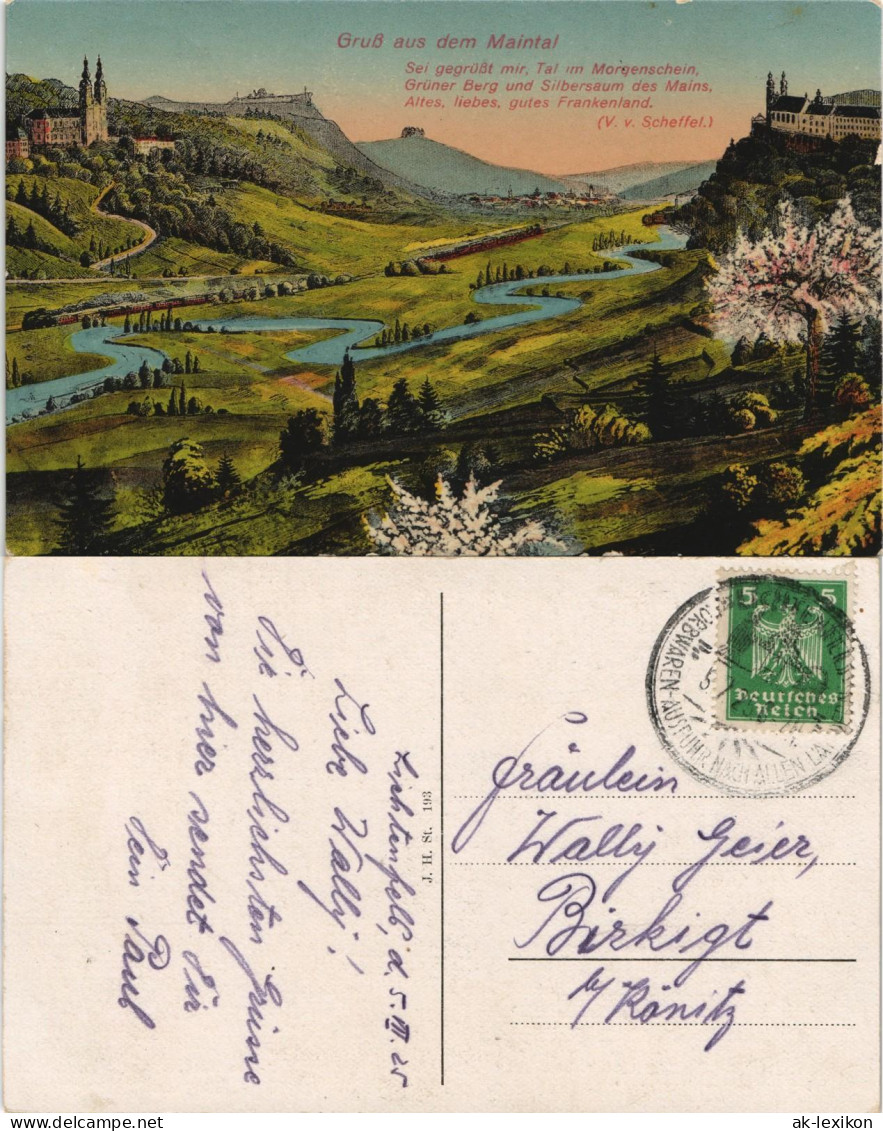 Gruß aus dem Maintal
Sei gegrüßt mir, Tal im Morgenschein,
Grüner Berg und Silbersaum des Mains,
Altes, liebes, gutes Frankenland.
(V. v. Scheffel.)
Lichtenfels, d. 5. VII. 25
Liebe Wally!
Die herzlichsten Grüsse
von hier sendet dir
dein Paul
J. H. St. 193
5 5
Deutsches
Reich
KORBWAREN-AUSFUHR NACH ALLEN
Fräulein
Wally Geier,
Birkigt
b/ Könitz
ak-lexikon